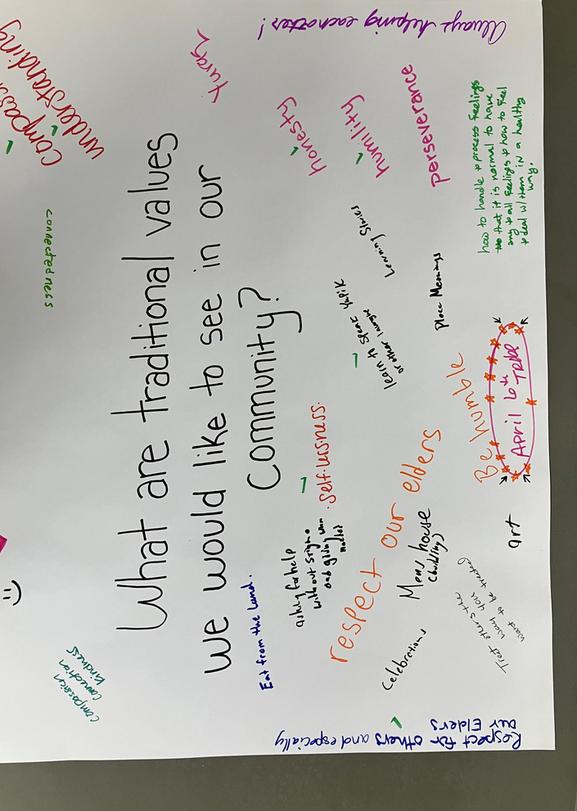 What are traditional values
we would like to see in our
Community?
Always helping eachother!
understanding
connectedness
honesty
humility
perseverance
how to handle + process feelings
that it is normal to have
any + all feelings + how to feel
+ deal w/ them in a healthy
way.
Learning Stories
Place Meanings
learn to speak Yupik
or other language
Be humble
April 6th
art
selflessness
respect our elders
Mens house
(building)
asking for help
without stigma
and giving when
Eat from the land.
Celebrations
Treat others the
way you
want to be treated
compassion
connection
kindness
Respect for others and especially
our Elders